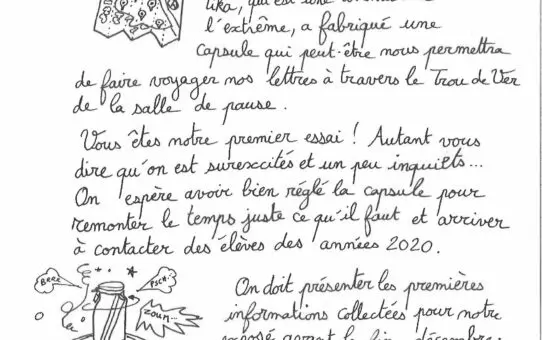 qui est une
l'extrême, a fabriqué une
capsule qui peut-être nous permettra
de faire voyager nos lettres à travers le Trou de Ver
de la salle de pause.
Vous êtes notre premier essai ! Autant vous
dire qu'on est surexcités et un peu inquiets...
On espère avoir bien réglé la capsule pour
remonter le temps juste ce qu'il faut et arriver
à contacter des élèves des années 2020.
BRRR
PSCH...
ZOUM...
On doit présenter les premières
informations collectées pour notre
exposé avant la fin décembre.